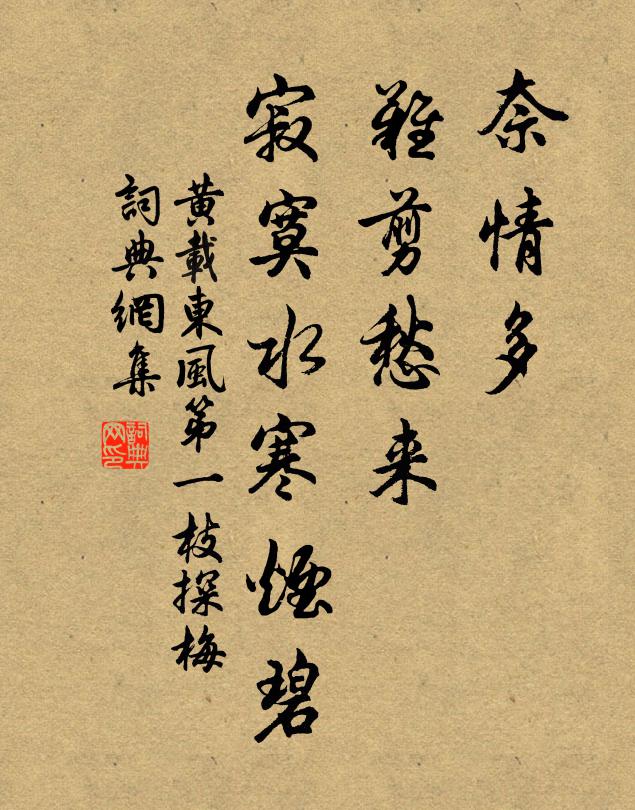 奈情多
難剪愁来
寂寞水寒煙碧
黃載東風第一枝探梅
詞典網集
詞典网印